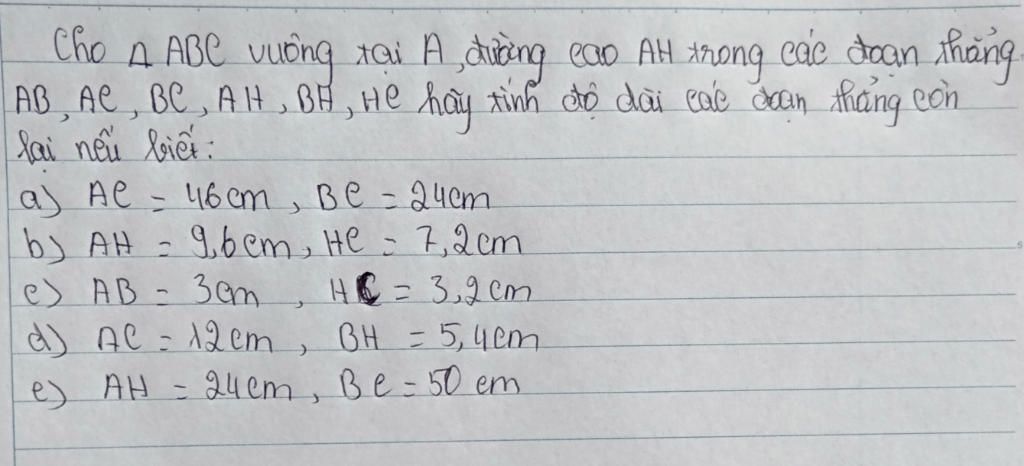 Cho Δ ABC vuông tại A, đường cao AH trong các đoạn thẳng
AB, AC, BC, AH, BH, HC hãy tính độ dài các đoạn thẳng còn
lại nếu biết:
a) AC = 46cm, BC = 24cm
b) AH = 9,6cm, HC = 7,2cm
c) AB = 3cm, HC = 3,2cm
d) AC = 12cm, BH = 5,4cm
e) AH = 24cm, BC = 50cm